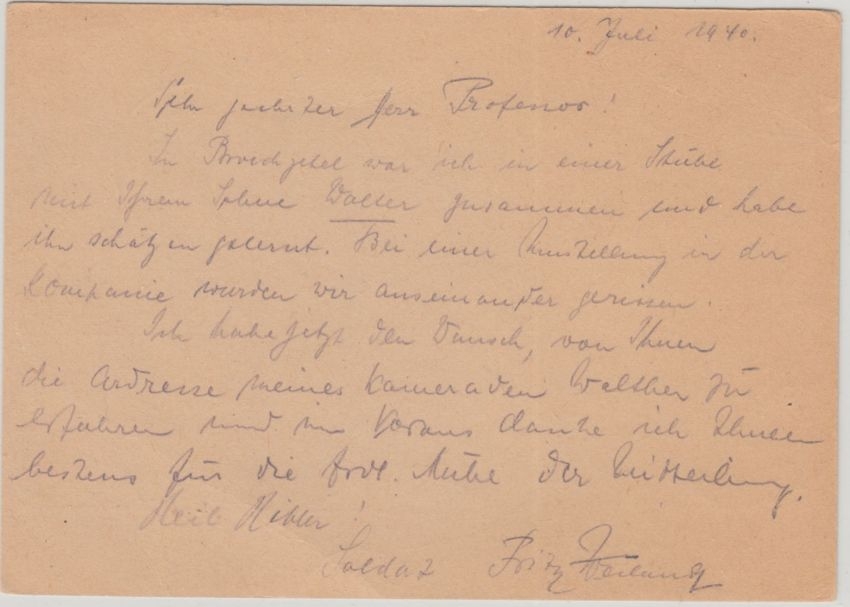 10. Juli 1940.
Sehr geehrter Herr Professor!
In war ich in einer Stube
mit Ihrem Sohne Walter zusammen und habe
ihn schätzen gelernt. Bei einer Umstellung in der
Kompanie wurden wir auseinander gerissen.
Ich habe jetzt den Wunsch, von Ihnen
die Adresse meines Kameraden Walther zu
erfahren und im Voraus danke ich Ihnen
bestens für die frdl. Mühe der Mitteilung.
Heil Hitler!
Soldat Fritz